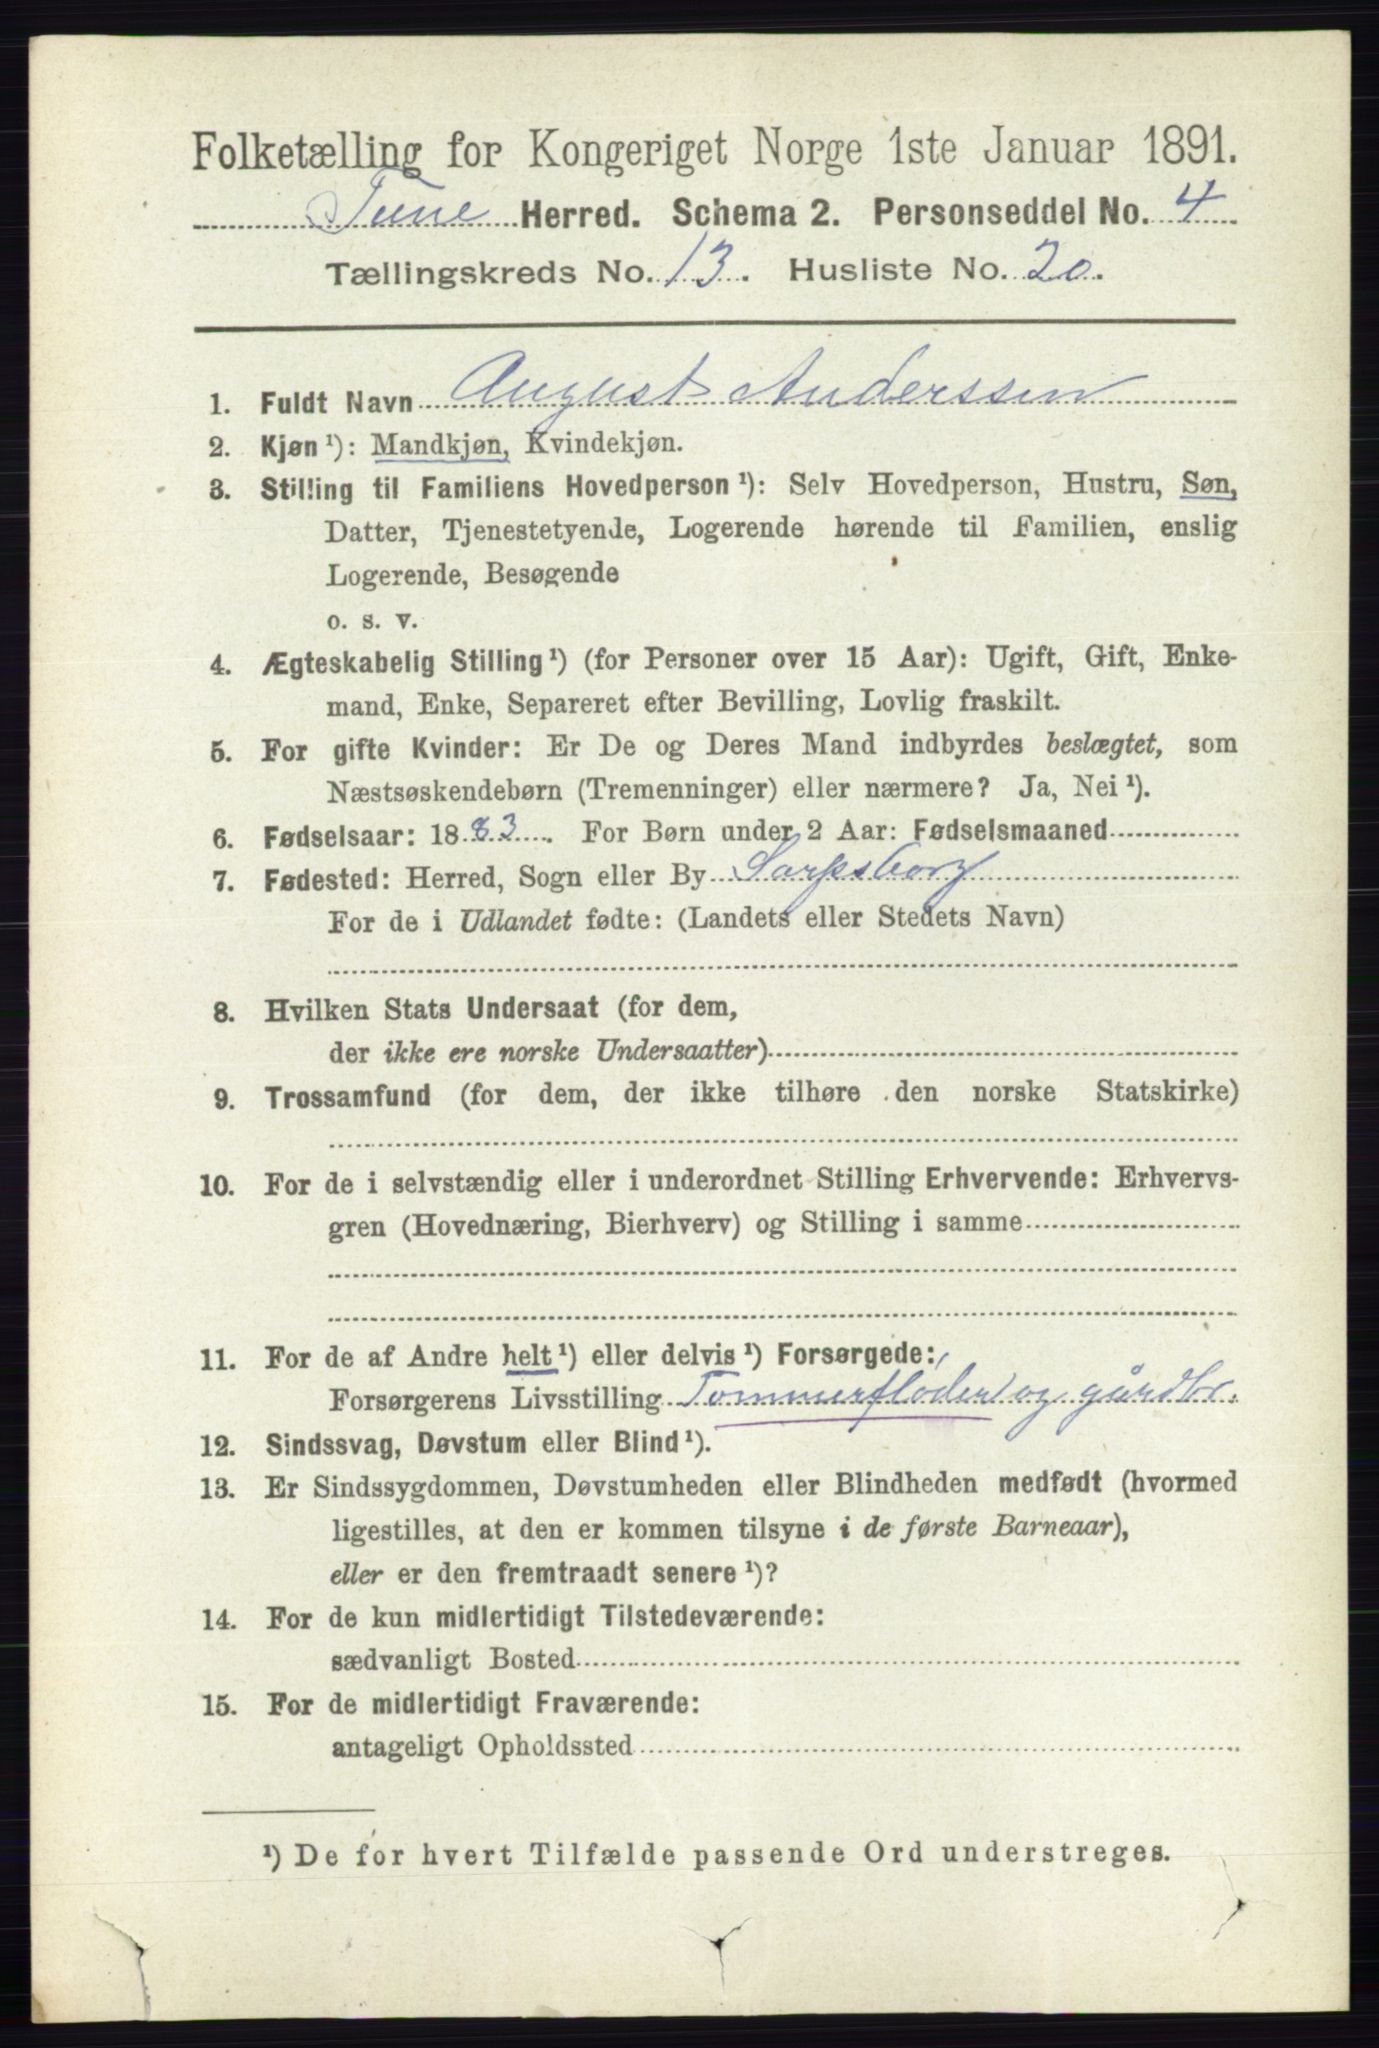 Folketælling for Kongeriget Norge 1ste Januar 1891.
Tune Herred. Schema 2. Personseddel No. 4
Tællingskreds No. 13. Husliste No. 20.
1. Fuldt Navn August Anderssen
2. Kjøn ¹): Mandkjøn, Kvindekjøn.
3. Stilling til Familiens Hovedperson ¹): Selv Hovedperson, Hustru, Søn,
Datter, Tjenestetyende, Logerende hørende til Familien, enslig
Logerende, Besøgende
o. s. v.
4. Ægteskabelig Stilling ¹) (for Personer over 15 Aar): Ugift, Gift, Enke-
mand, Enke, Separeret efter Bevilling, Lovlig fraskilt.
5. For gifte Kvinder: Er De og Deres Mand indbyrdes beslægtet, som
Næstsøskendebørn (Tremenninger) eller nærmere? Ja, Nei ¹).
6. Fødselsaar: 1883. For Børn under 2 Aar: Fødselsmaaned
7. Fødested: Herred, Sogn eller By Sarpsborg
For de i Udlandet fødte: (Landets eller Stedets Navn)
8. Hvilken Stats Undersaat (for dem,
der ikke ere norske Undersaatter)
9. Trossamfund (for dem, der ikke tilhøre den norske Statskirke)
10. For de i selvstændig eller i underordnet Stilling Erhvervende: Erhvervs-
gren (Hovednæring, Bierhverv) og Stilling i samme
11. For de af Andre helt ¹) eller delvis ¹) Forsørgede:
Forsørgerens Livsstilling Tømmerfløder og gårdbr.
12. Sindssvag, Døvstum eller Blind ¹).
13. Er Sindssygdommen, Døvstumheden eller Blindheden medfødt (hvormed
ligestilles, at den er kommen tilsyne i de første Barneaar),
eller er den fremtraadt senere ¹)?
14. For de kun midlertidigt Tilstedeværende:
sædvanligt Bosted
15. For de midlertidigt Fraværende:
antageligt Opholdssted
¹) De for hvert Tilfælde passende Ord understreges.